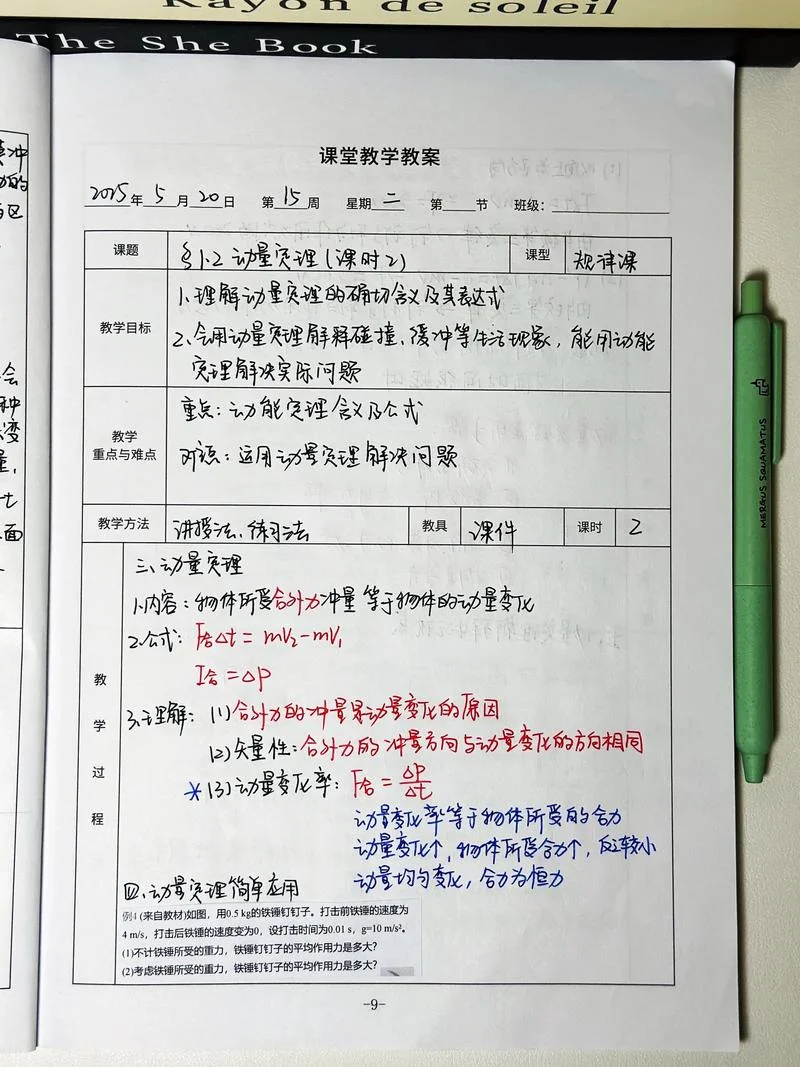 Rayon de soleil
The She Book
课堂教学教案
2025年5月20日 第15周 星期二 第 节 班级:
课题 §1.2 动量定理(课时2) 课型 规律课
教学目标
1.理解动量定理的确切含义及其表达式
2.会用动量定理解释碰撞、缓冲等生活现象,能用动能
定理解决实际问题
教学
重点与难点
重点:动能定理含义及公式
难点:运用动量定理解决问题
教学方法 讲授法、练习法 教具 课件 课时 2
教
学
过
程
三、动量定理
1.内容:物体所受合外力冲量等于物体的动量变化
2.公式:F合Δt=mV₂-mV₁
I合=Δp
3.理解:(1)合外力的冲量是动量变化的原因
(2)矢量性:合外力的冲量方向与动量变化的方向相同
*(3)动量变化率:F合=Δp/Δt
动量变化率等于物体所受的合力
动量变化↑,物体所受合力↑,反之较小
动量均匀变化,合力为恒力
四、动量定理简单应用
例4 (来自教材)如图,用0.5 kg的铁锤钉钉子。打击前铁锤的速度为
4 m/s,打击后铁锤的速度变为0,设打击时间为0.01 s,g=10 m/s²。
(1)不计铁锤所受的重力,铁锤钉钉子的平均作用力是多大?
(2)考虑铁锤所受的重力,铁锤钉钉子的平均作用力是多大?
-9-
MERGUS SQUAMATUS